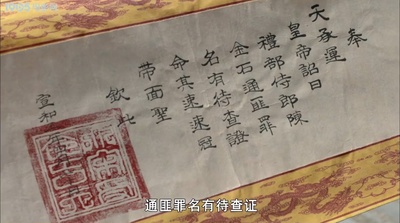 奉
天承運
皇帝詔曰
禮部侍郎陳
金石通匪罪
名有待查證
命其速速冠
带面聖
欽此
宣
通匪罪名有待查证